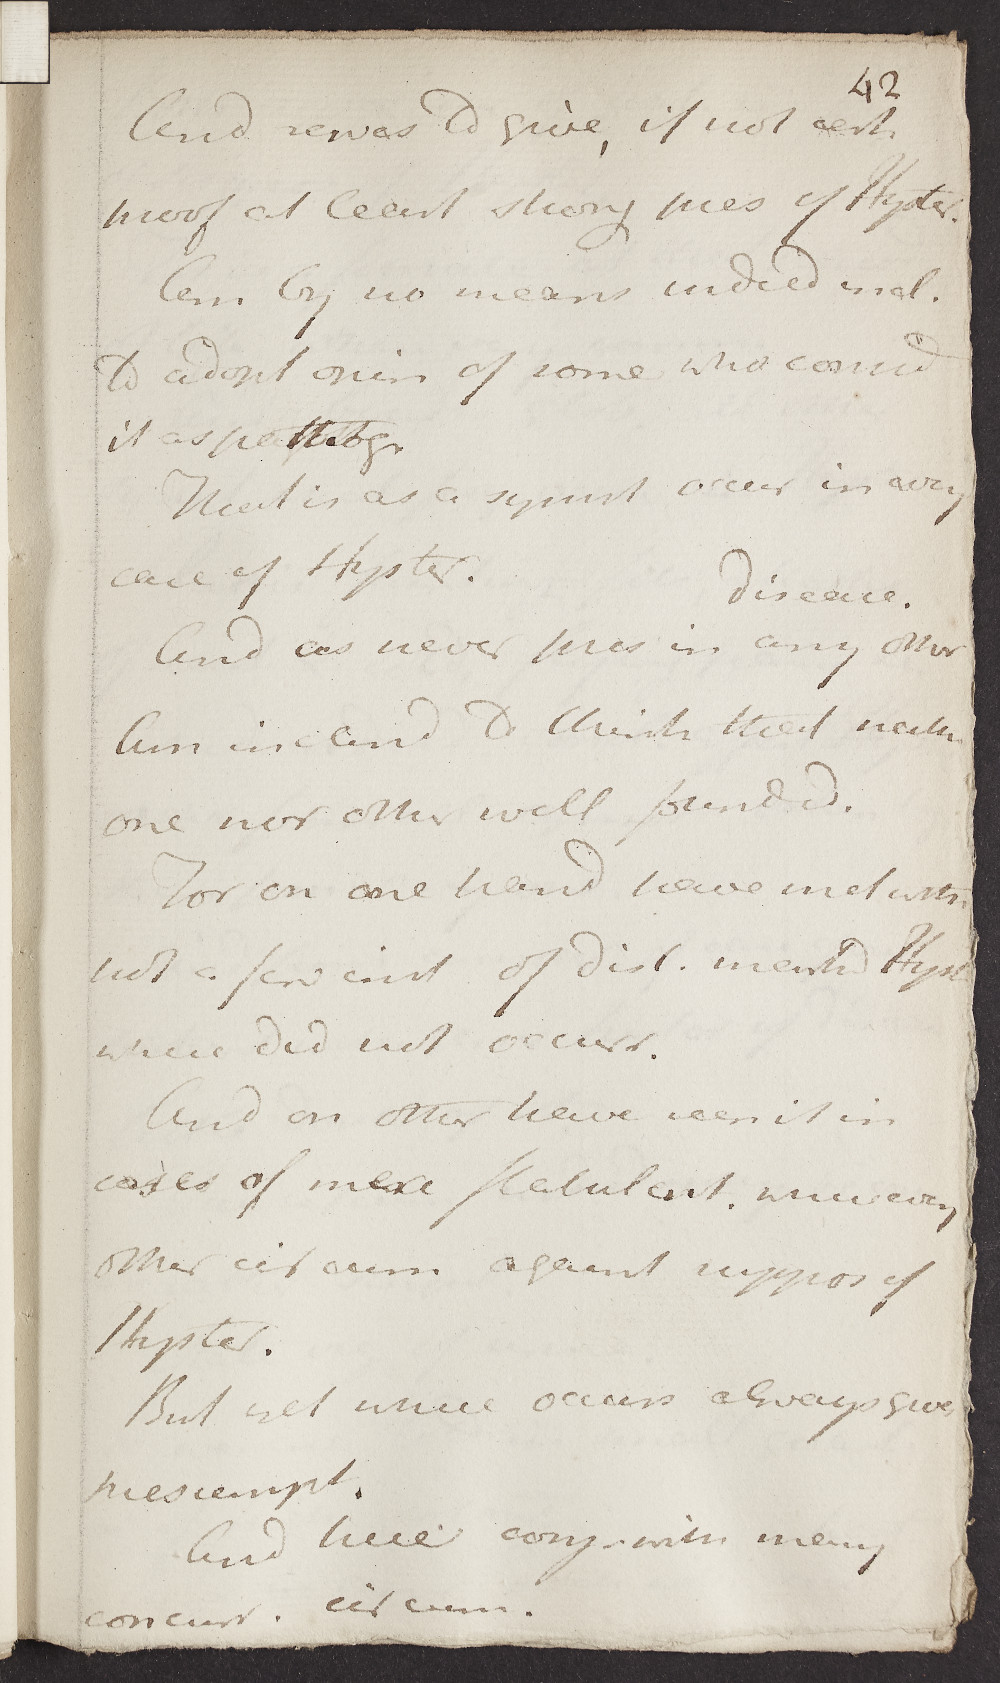 42
And serves to give, if not certn
proof at least strong pres of Hyster.
Am by no means indeed incl.
to adopt opin of some who consid
it as pathog.
That is as a sympt occur in every
case of Hyster.
disease.
And as never pres in any other
Am inclind to think that neith
one nor other well founded.
For on one hand have met with
not a few inst of dist. markd Hyst
where did not occurr.
And on other have seen it in
cases of mere flatulent. where every
other circum against suppos of
Hyster.
But yet where occurs always gives
presumpt.
And here conj. with many
concurr. circum.